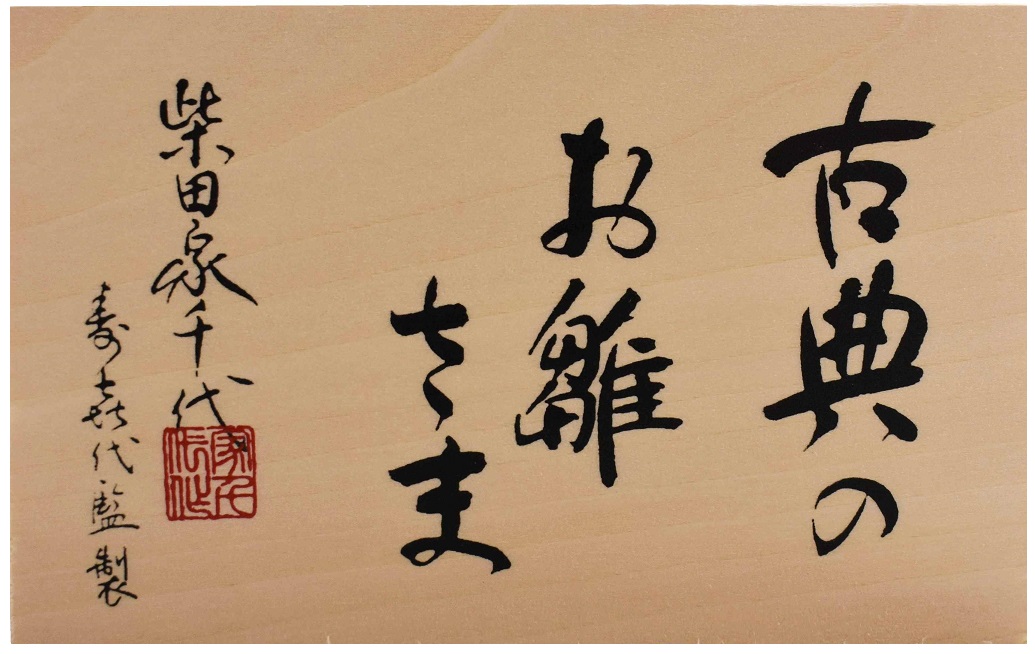 古典の
お雛
さま
柴田家千代
寿喜代監製